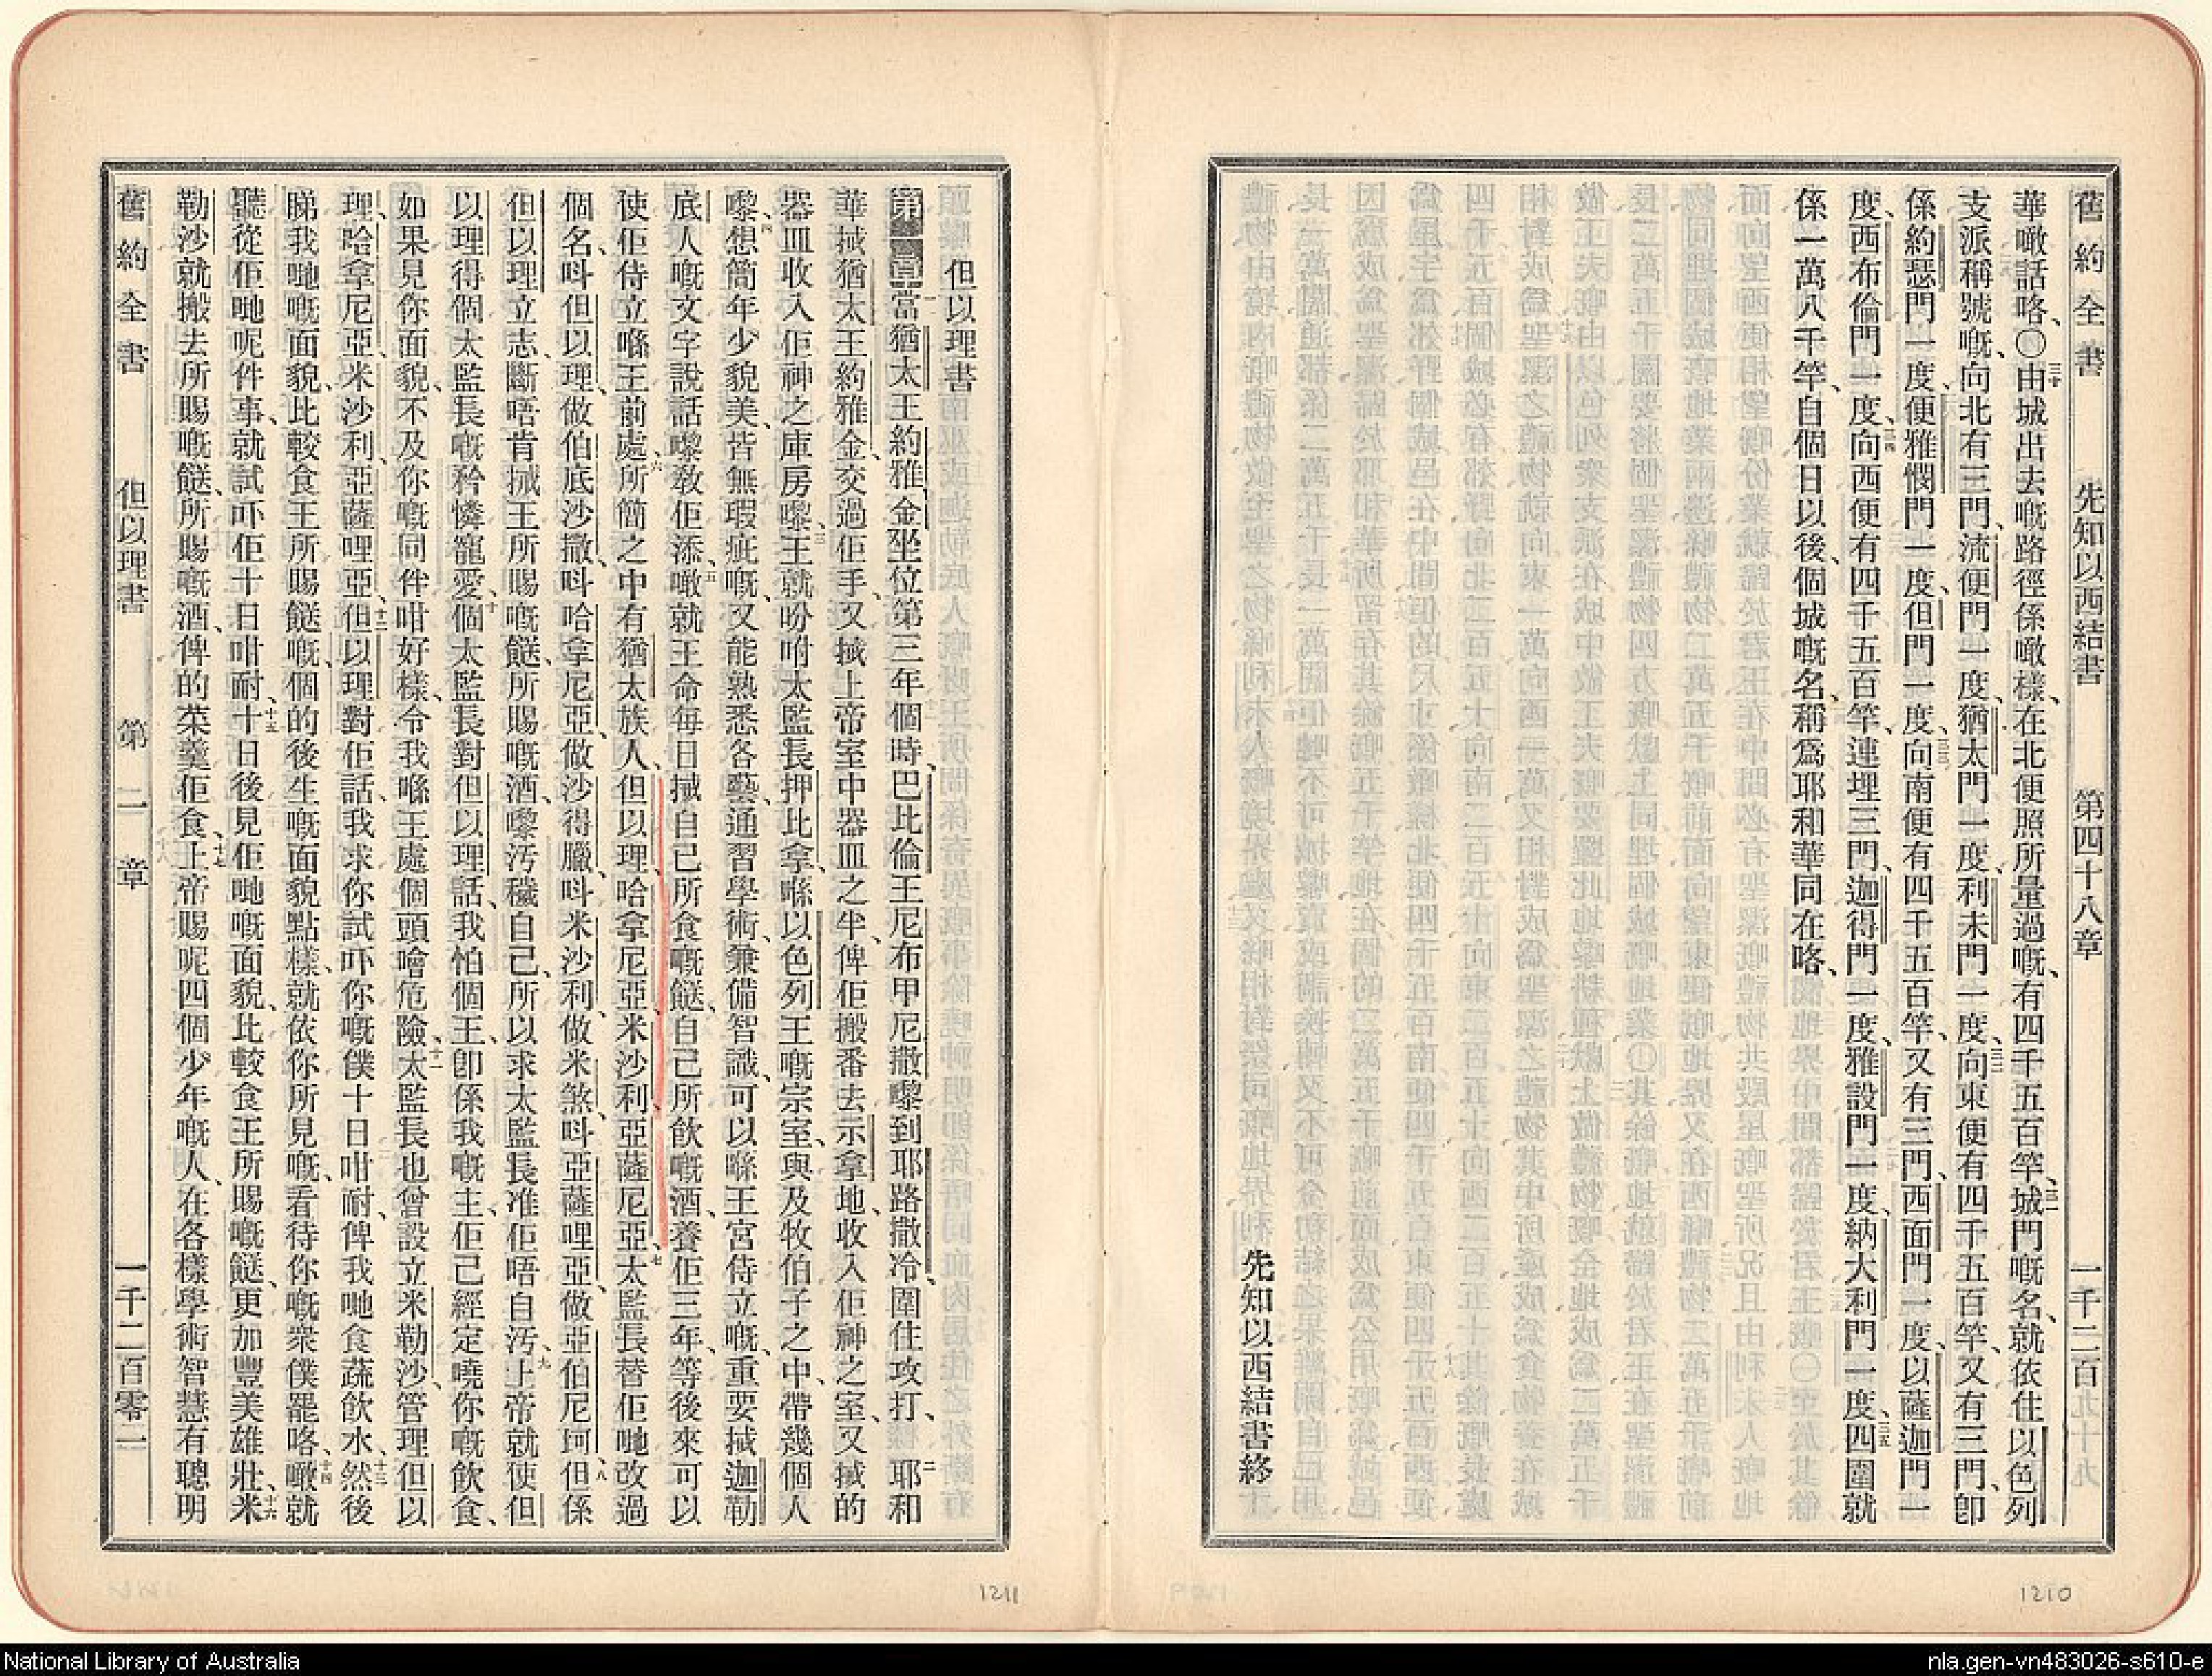 舊約全書 先知以西結書 第四十八章 一千二百
華噉話咯、〇三十由城出去嘅路徑係噉樣、在北便照所量過嘅、有四千五百竿、三一城門嘅名、就依住以色列
支派稱號嘅、向北有三門、流便門一度、猶太門一度、利未門一度、三二向東便有四千五百竿、又有三門、卽
係約瑟門一度、便雅憫門一度、但門一度、三三向南便有四千五百竿、又有三門、西面門一度、以薩迦門一
度、西布倫門一度、三四向西便有四千五百竿、連埋三門、迦得門一度、雅設門一度、納大利門一度、三五四圍就
係一萬八千竿、自個日以後、個城嘅名、稱爲耶和華同在咯、
先知以西結書終
1210
但以理書
第一章一當猶太王約雅金坐位第三年個時、巴比倫王尼布甲尼撒嚟到耶路撒冷、圍住攻打、二耶和
華搣猶太王約雅金、交過佢手、又搣上帝室中器皿之半、俾佢搬番去示拿地、收入佢神之室、又搣的
器皿收入佢神之庫房嚟、三王就吩咐太監長押比拿、喺以色列王嘅宗室、與及牧伯子之中、帶幾個人
嚟、四想簡年少貌美、皆無瑕疵嘅、又能熟悉各藝、通習學術、兼備智識、可以喺王宮侍立嘅、重要搣迦勒
底人嘅文字說話嚟敎佢添、五噉就王命每日搣自己所食嘅餸、自己所飲嘅酒、養佢三年、等後來可以
使佢侍立喺王前處、六所簡之中有猶太族人、但以理、哈拿尼亞、米沙利、亞薩尼亞、七太監長替佢哋改過
個名、呌但以理、做伯底沙撒、呌哈拿尼亞、做沙得臘、呌米沙利、做米煞、呌亞薩哩亞、做亞伯尼珂、八但係
但以理立志、斷唔肯搣王所賜嘅餸、所賜嘅酒、嚟汚穢自己、所以求太監長准佢唔自汚、九上帝就使但
以理得個太監長嘅矜憐寵愛、十個太監長對但以理話、我怕個王、卽係我嘅主、佢己經定曉你嘅飲食、
如果見你面貌、不及你嘅同伴咁好樣、令我喺王處個頭噲危險、十一太監長也曾設立米勒沙、管理但以
理、哈拿尼亞、米沙利、亞薩哩亞、十二但以理對佢話、我求你試吓你嘅僕十日咁耐、俾我哋食蔬飲水、十三然後
睇我哋嘅面貌、比較食王所賜餸嘅、個的後生嘅面貌點樣、就依你所見嘅、看待你嘅衆僕罷咯、十四噉就
聽從佢哋呢件事、就試吓佢十日咁耐、十五十日後見佢哋嘅面貌、比較食王所賜嘅餸、更加豐美雄壯、十六米
勒沙就搬去所賜嘅餸、所賜嘅酒、俾的菜羹佢食、十七上帝賜呢四個少年嘅人、在各樣學術智慧有聰明
舊約全書 但以理書 第一章 一千二百零一
1211
National Library of Australia
nla.gen-vn483026-s610-e